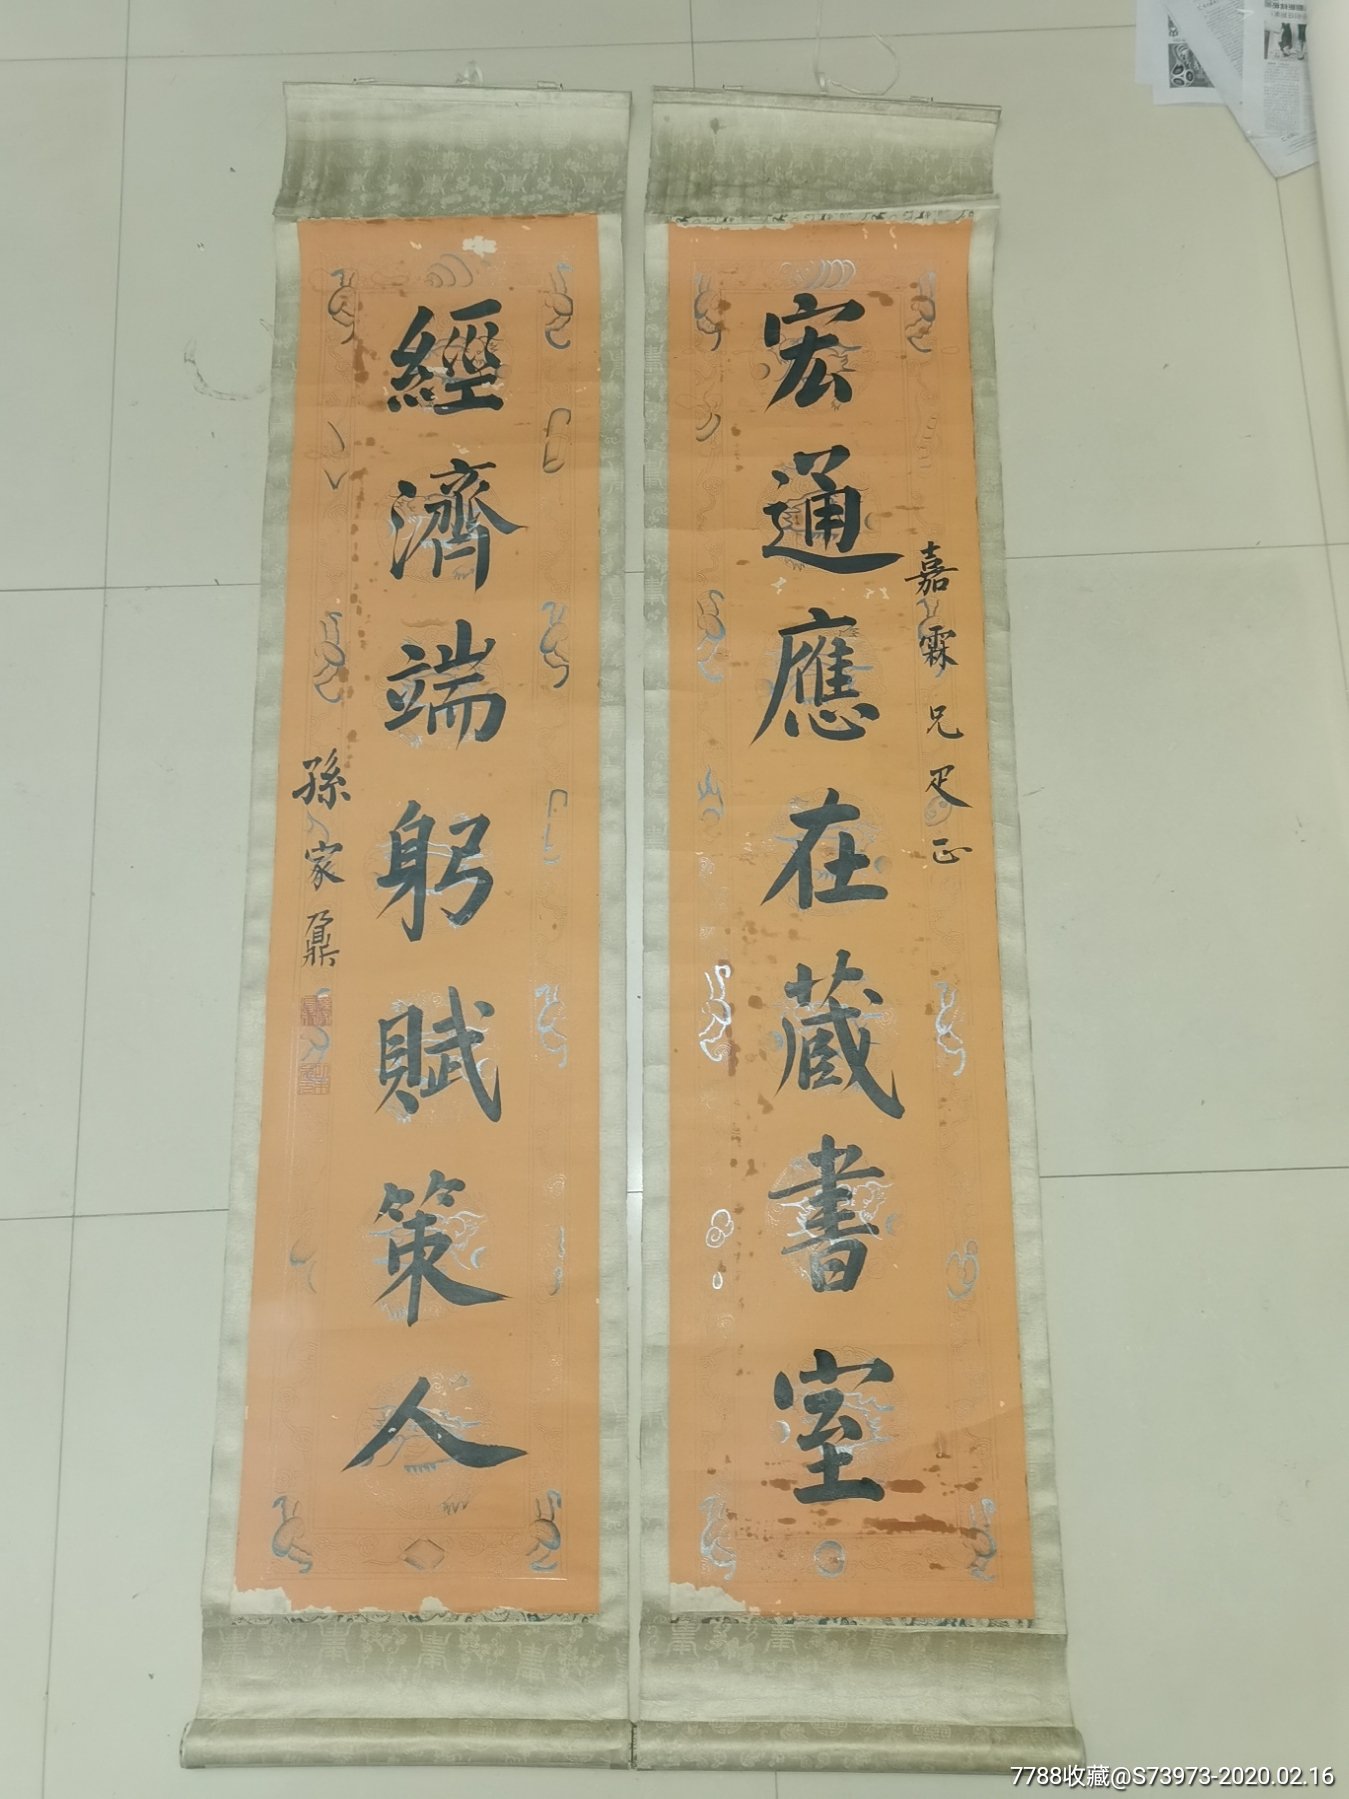 嘉霖兄疋正
宏通應在藏書室
經濟端躬賦策人
孫家鼐
7788收藏@S73973-2020.02.16